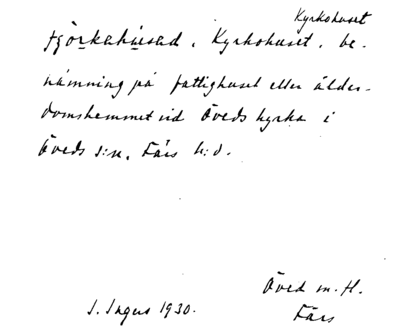 Kyrkohuset
tjörkahúsed, Kyrkohuset, be-
nämning på fattighuset eller ålder-
domshemmet vid Öveds kyrka i
Öveds s:n, Färs h:d.
Öved m. fl.
S. Ingers 1930.
Färs